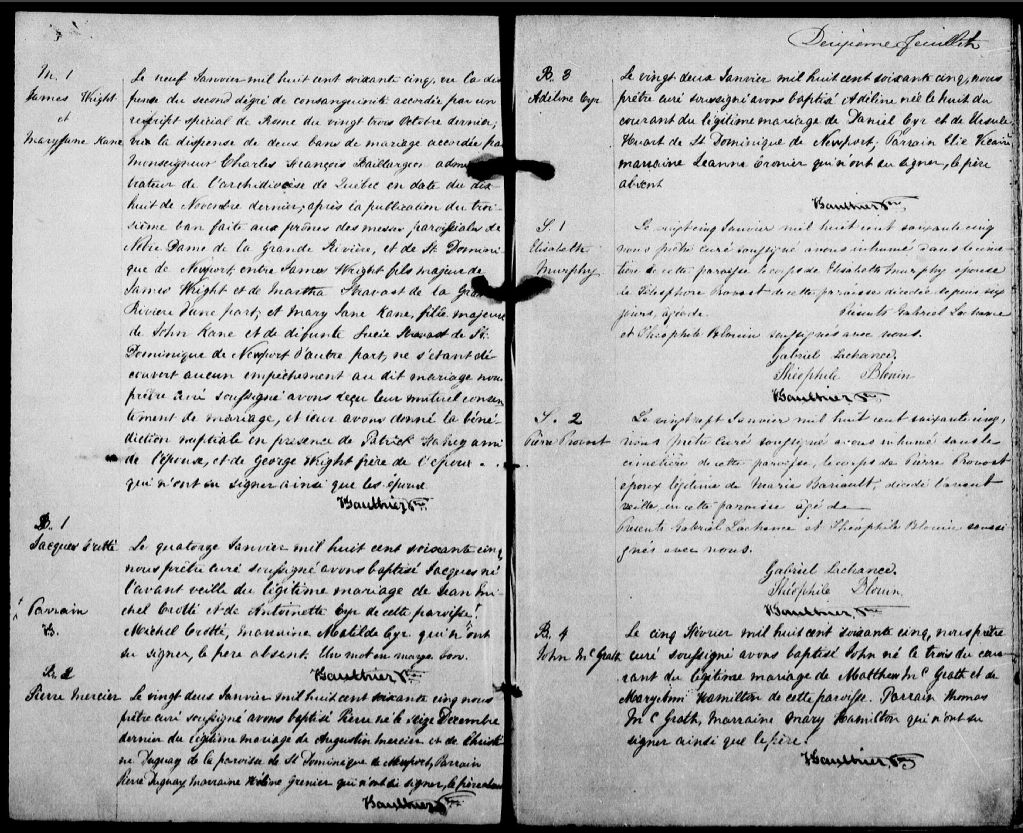 M. 1
James Wright
et
Mary Jane Kane
Le neuf Janvier mil huit cent soixante cinq, vu la dis-
pense du second dégré de consanguinité accordée par un
rescript spécial de Rome du vingt trois Octobre dernier;
vu la dispense de deux bans de mariage accordée par
Monseigneur Charles François Baillargeon adminis-
trateur de l'archidiocèse de Québec en date du dix
huit de Novembre dernier; après la publication du troi-
sième ban faite aux prônes des messes paroissiales de
Notre Dame de la Grande Rivière, et de St. Domini-
que de Newport, entre James Wright fils majeur de
James Wright et de Martha de la Grande
Rivière d'une part; et Mary Jane Kane, fille majeure
de John Kane et de défunte Lucie de St.
Dominique de Newport d'autre part, ne s'étant dé-
couvert aucun empêchement au dit mariage nous
prêtre curé soussigné avons reçu leur mutuel consen-
tement de mariage, et leur avons donné la béné-
diction nuptiale en présence de Patrick ami
de l'épouse, et de George Wright frère de l'époux
qui n'ont su signer ainsi que les époux.
Gauthier Ptre
B. 1
Jacques Crotté
Le quatorze Janvier mil huit cent soixante cinq
nous prêtre curé soussigné avons baptisé Jacques né
l'avant veille du légitime mariage de Jean Mi-
chel Crotté et de Antoinette Cyr de cette paroisse!
Parrain
Michel Crotté, marraine Matilde Cyr qui n'ont
su signer, le père absent. Un mot en marge bon.
Gauthier Ptre
B. 2
Pierre Mercier
Le vingt deux Janvier mil huit cent soixante cinq nous
prêtre curé soussigné avons baptisé Pierre né le seize Décembre
dernier du légitime mariage de Augustin Mercier et de Christi-
ne Duguay de la paroisse de St Dominique de Newport, Parrain
Pierre Duguay marraine Hélène Grenier qui n'ont su signer, le père absent
Gauthier Ptre
Deuxième feuillet
B. 3
Adéline Cyr
Le vingt deux Janvier mil huit cent soixante cinq, nous
prêtre curé soussigné avons baptisé Adéline née le huit du
courant du légitime mariage de Daniel Cyr et de Ursule
Huart de St Dominique de Newport; Parrain Elie Vicaire
marraine Leanne Cronier qui n'ont su signer, le père
absent
Gauthier Ptre
S. 1
Elisabeth
Murphy
Le vingt cinq Janvier mil huit cent soixante cinq
nous prêtre curé soussigné avons inhumé dans le cime-
tière de cette paroisse le corps de Elisabeth Murphy épouse
de Télesphore Provost de cette paroisse décédée depuis six
jours, agée de Présents Gabriel Lachance
et Théophile Blouin soussignés avec nous.
Gabriel Lachance
Théophile Blouin
Gauthier Ptre
S. 2
Pierre Provost
Le vingt sept Janvier mil huit cent soixante cinq,
nous prêtre curé soussigné avons inhumé dans le
cimetière de cette paroisse, le corps de Pierre Provost
époux légitime de Marie Bariault, décédé l'avant
veille en cette paroisse âgé de
Présents Gabriel Lachance et Théophile Blouin soussi-
gnés avec nous.
Gabriel Lachance
Théophile Blouin
Gauthier Ptre
B. 4
John McGrath
Le cinq Février mil huit cent soixante cinq, nous prêtre
curé soussigné avons baptisé John né le trois du cou-
rant du légitime mariage de Matthew McGrath et de
Mary Ann Hamilton de cette paroisse. Parrain Thomas
McGrath, Marraine Mary Hamilton qui n'ont su
signer ainsi que le père.
Gauthier Ptre